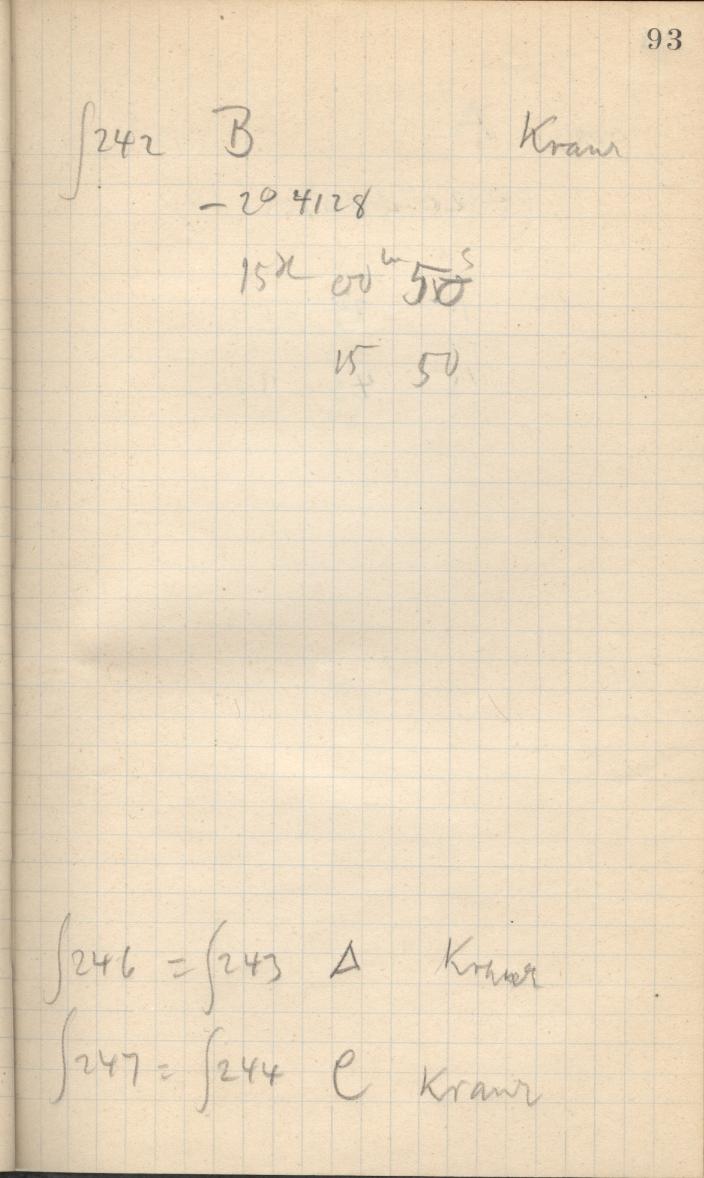 93
∫242 B Kranr
– 20 4128
15h 00m 50s
15 50
∫246 = ∫243 Δ Kranr
∫247 = ∫244 C Kranr